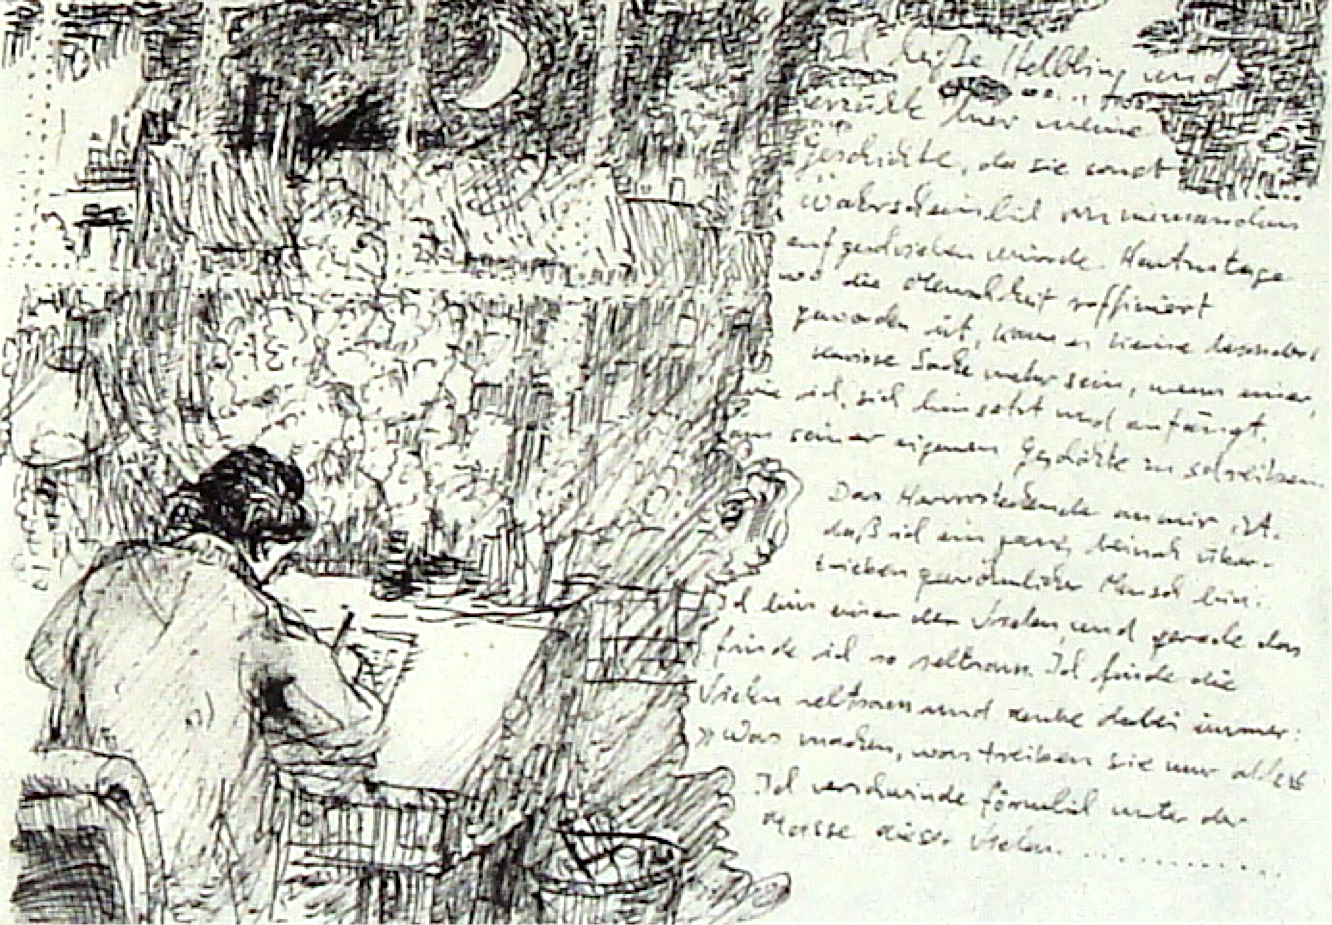 Ich heiße Helbling und
erzähle hier meine
Geschichte, da sie sonst
wahrscheinlich von niemandem
aufgeschrieben würde. Heutzutage
wo die Menschheit raffiniert
geworden ist, kann es keine besonders
kuriose Sache mehr sein, wenn einer,
wie ich, sich hinsetzt und anfängt,
an seiner eigenen Geschichte zu schreiben
Das Hervorstechende an mir ist,
daß ich ein ganz, beinah über-
trieben gewöhnlicher Mensch bin.
Ich bin einer der Vielen, und gerade das
finde ich so seltsam. Ich finde die
Vielen seltsam und denke dabei immer:
»Was machen, was treiben sie nur alle«
Ich verschwinde förmlich unter der
Masse dieser Vielen..............